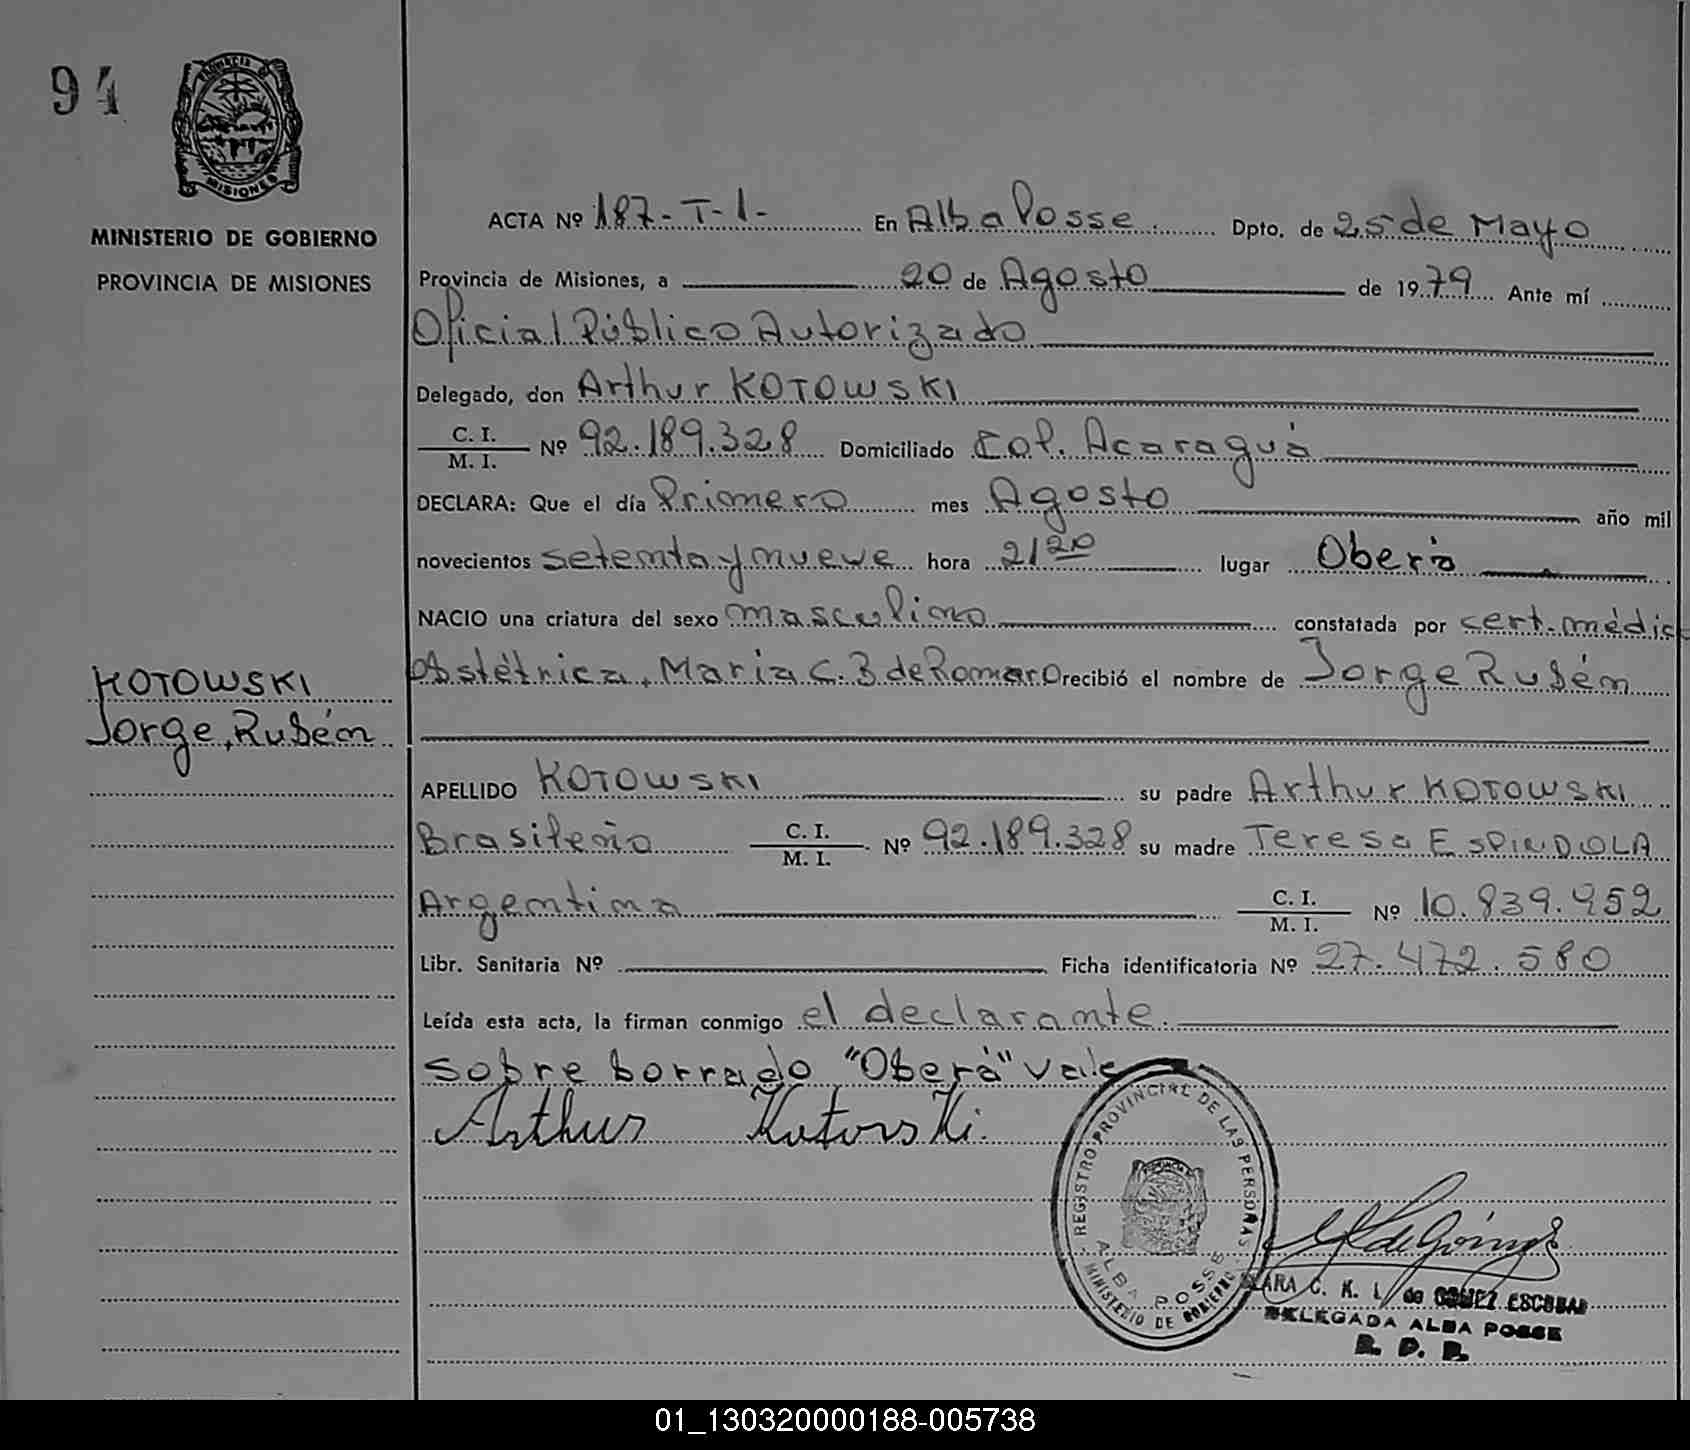 94
PROVINCIA DE
MISIONES
MINISTERIO DE GOBIERNO
PROVINCIA DE MISIONES
ACTA Nº 187-T-1- En Alba Posse Dpto. de 25 de Mayo
Provincia de Misiones, a 20 de Agosto de 1979 Ante mí
Oficial Público Autorizado
Delegado, don Arthur KOTOWSKI
C. I.
M. I. Nº 92.189.328 Domiciliado Col. Acaraguá
DECLARA: Que el día Primero mes Agosto año mil
novecientos setenta y nueve hora 21 20 lugar Oberá
NACIO una criatura del sexo masculino constatada por cert. médic
Obstétrica, Maria C. B de Romero recibió el nombre de Jorge Rubén
KOTOWSKI
Jorge, Rubén
APELLIDO KOTOWSKI su padre Arthur KOTOWSKI
Brasileño C. I.
M. I. Nº 92.189.328 su madre Teresa ESPINDOLA
Argentina C. I.
M. I. Nº 10.839.952
Libr. Sanitaria Nº Ficha identificatoria Nº 27.472.580
Leída esta acta, la firman conmigo el declarante.
Sobre borrado "Oberá" vale
Arthur Kotovski.
REGISTRO PROVINCIAL DE LAS PERSONAS
MINISTERIO DE GOBIERNO
ALBA POSSE
CLARA C. K. L. de GOMEZ ESCOBAR
DELEGADA ALBA POSSE
R. P. P.
01_130320000188-005738